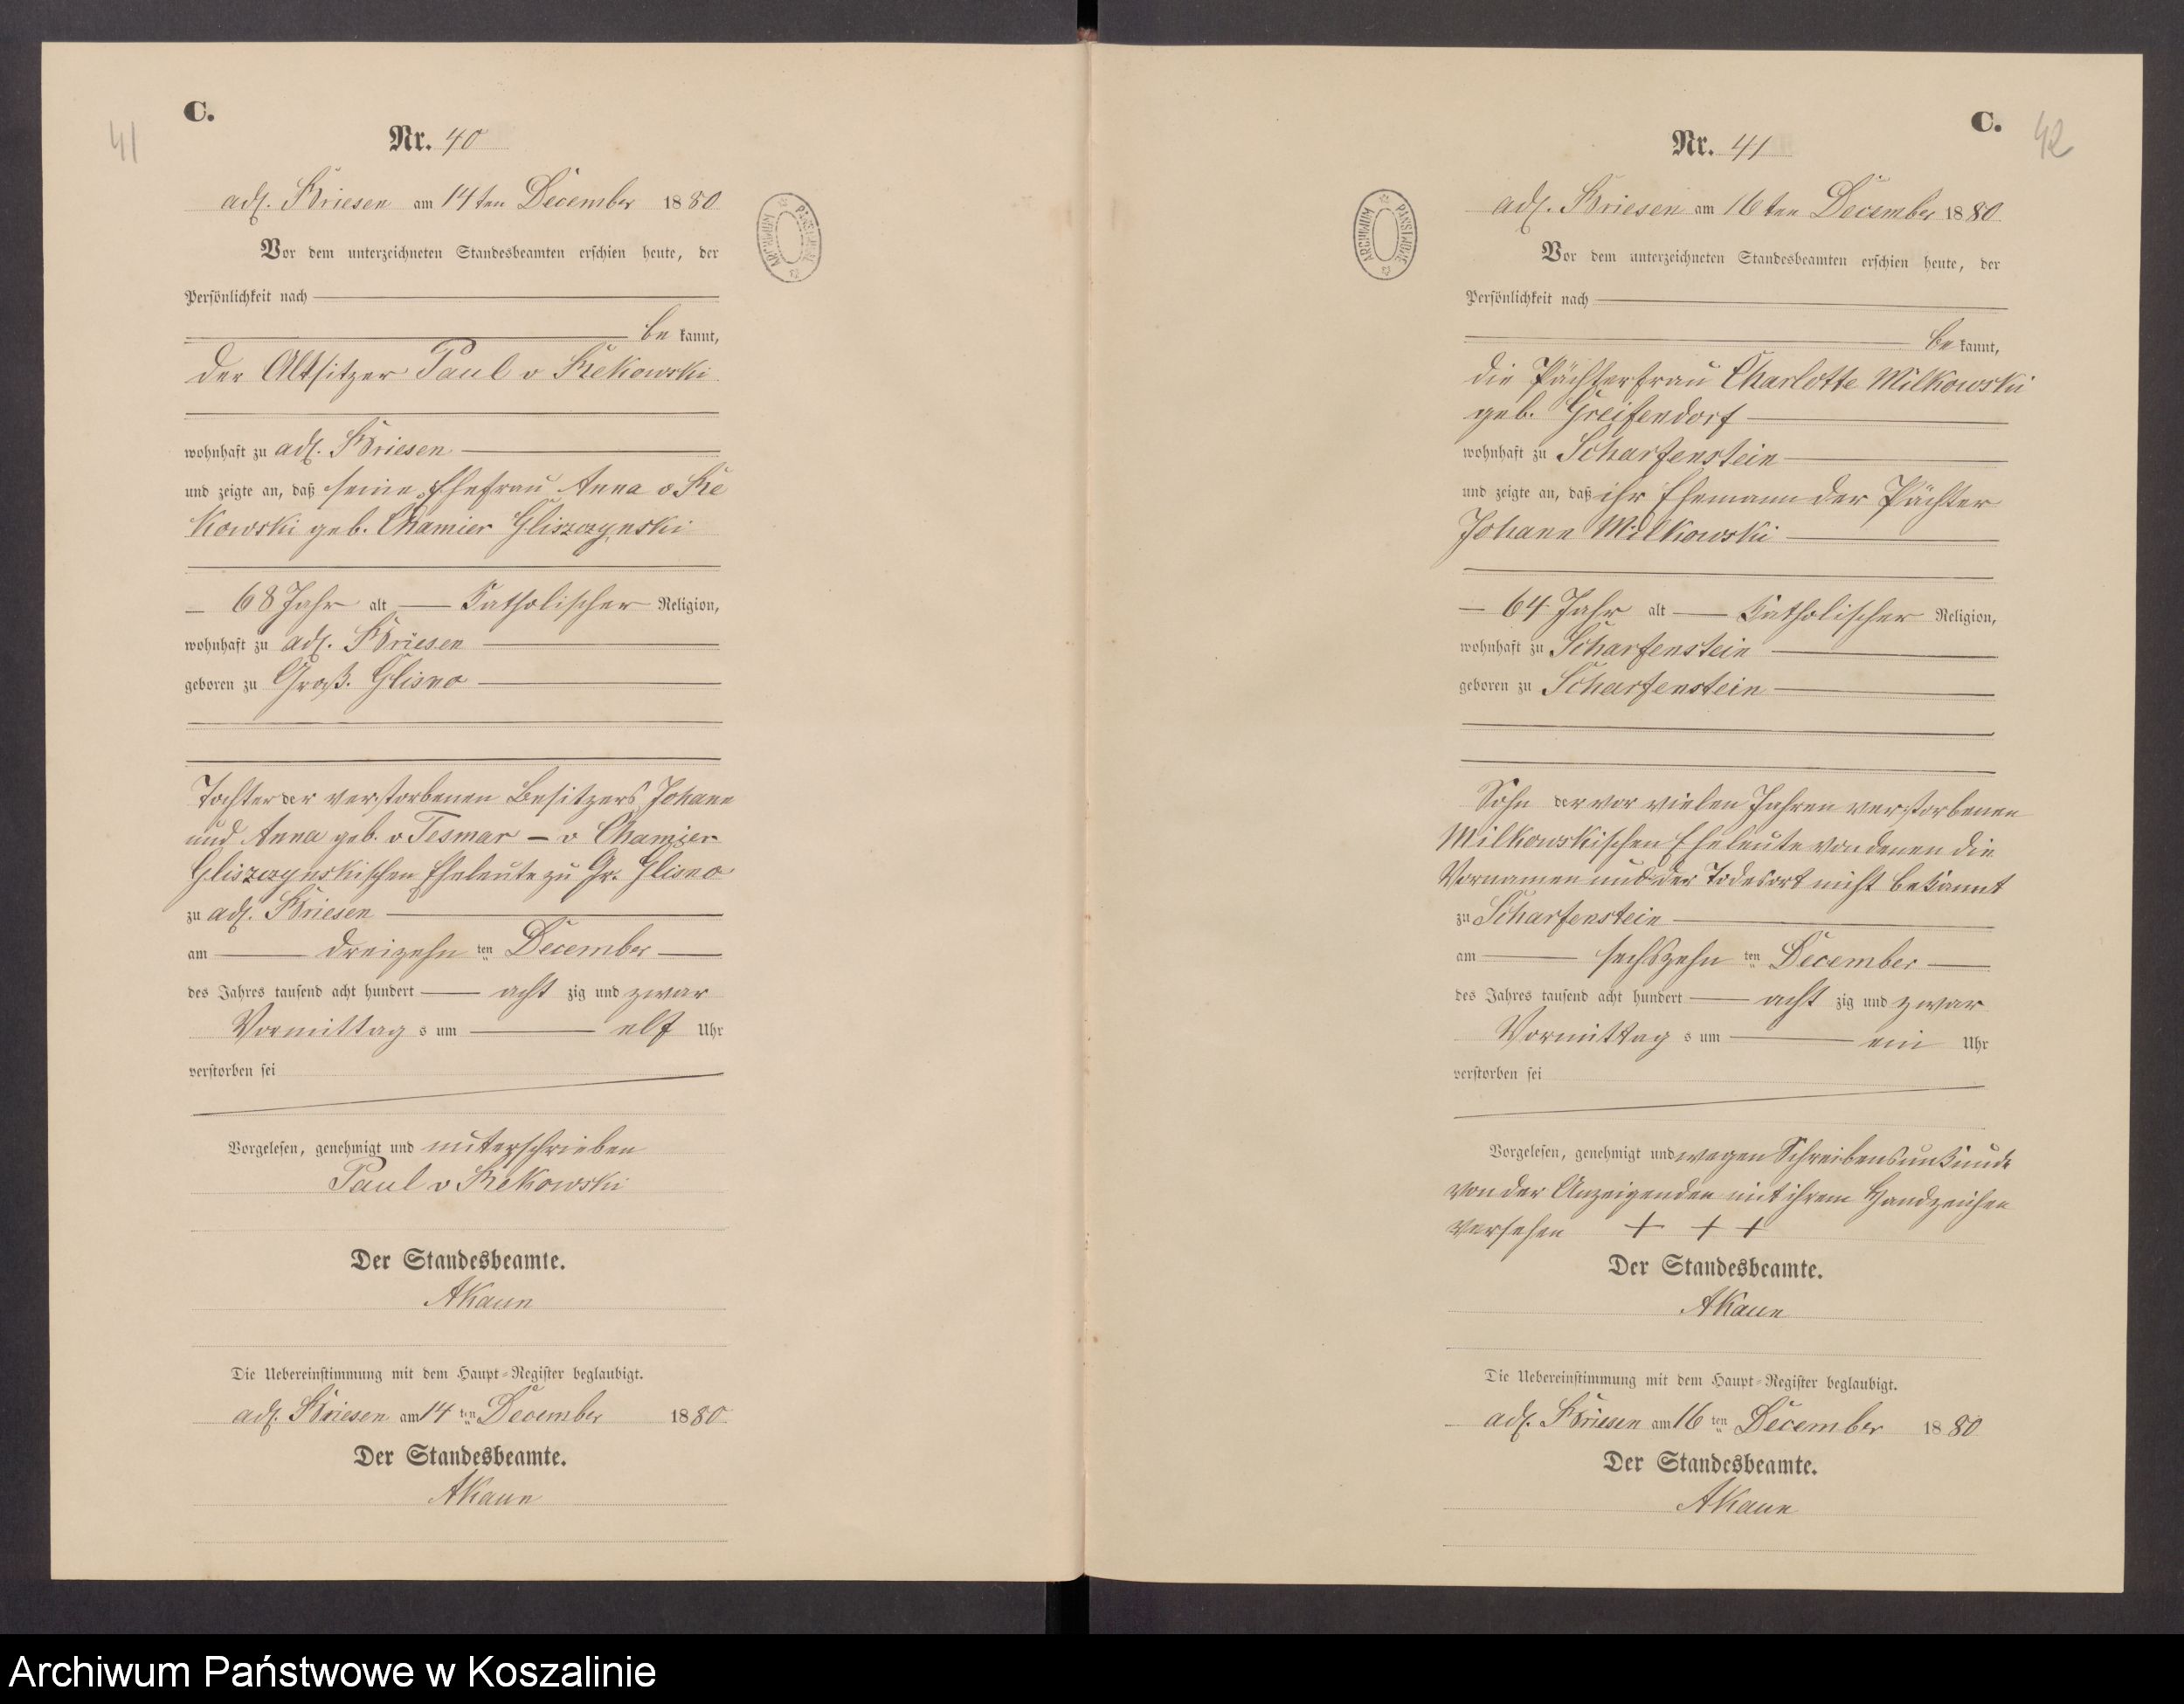 41
C.
Nr. 40
adl. Briesen am 14ten December 1880
Vor dem unterzeichneten Standesbeamten erschien heute, der
Persönlichkeit nach
be kannt,
der Altsitzer Paul v Rekowski
wohnhaft zu adl. Briesen
und zeigte an, daß seine Ehefrau Anna v Re
kowski geb. Chamier Gliszczynski
68 Jahr alt Katholischer Religion,
wohnhaft zu adl. Briesen
geboren zu Groß. Glisno
Tochter der verstorbenen Besitzers Johann
und Anna geb. v Tesmar – v Chamier
Gliszczynskischen Eheleute zu Gr. Glisno
zu adl. Briesen
am dreizehn ten December
des Jahres tausend acht hundert acht zig und zwar
Vormittag s um elf Uhr
verstorben sei
Vorgelesen, genehmigt und unterschrieben
Paul v Rekowski
Der Standesbeamte.
AKaun
Die Uebereinstimmung mit dem Haupt-Register beglaubigt.
adl. Briesen am 14 ten December 1880
Der Standesbeamte.
AKaun
ARCHIWUM PAŃSTWOWE
C.
42
Nr. 41
adl. Briesen am 16ten December 1880
Vor dem unterzeichneten Standesbeamten erschien heute, der
Persönlichkeit nach
be kannt,
die Pächterfrau Charlotte Milkowski
geb. Greifendorf
wohnhaft zu Scharfenstein
und zeigte an, daß ihr Ehemann der Pächter
Johann Milkowski
64 Jahr alt Katholischer Religion,
wohnhaft zu Scharfenstein
geboren zu Scharfenstein
Sohn der vor vielen Jahren verstorbenen
Milkowskischen Eheleute von denen die
Vornamen und der Todesort nicht bekannt
zu Scharfenstein
am sechszehn ten December
des Jahres tausend acht hundert acht zig und zwar
Vormittag s um ein Uhr
verstorben sei
Vorgelesen, genehmigt und wegen Schreibensunkunde
von der Anzeigenden mit ihrem Handzeichen
versehen + + +
Der Standesbeamte.
AKaun
Die Uebereinstimmung mit dem Haupt-Register beglaubigt.
adl. Briesen am 16 ten December 1880
Der Standesbeamte.
AKaun
ARCHIWUM PAŃSTWOWE
Archiwum Państwowe w Koszalinie